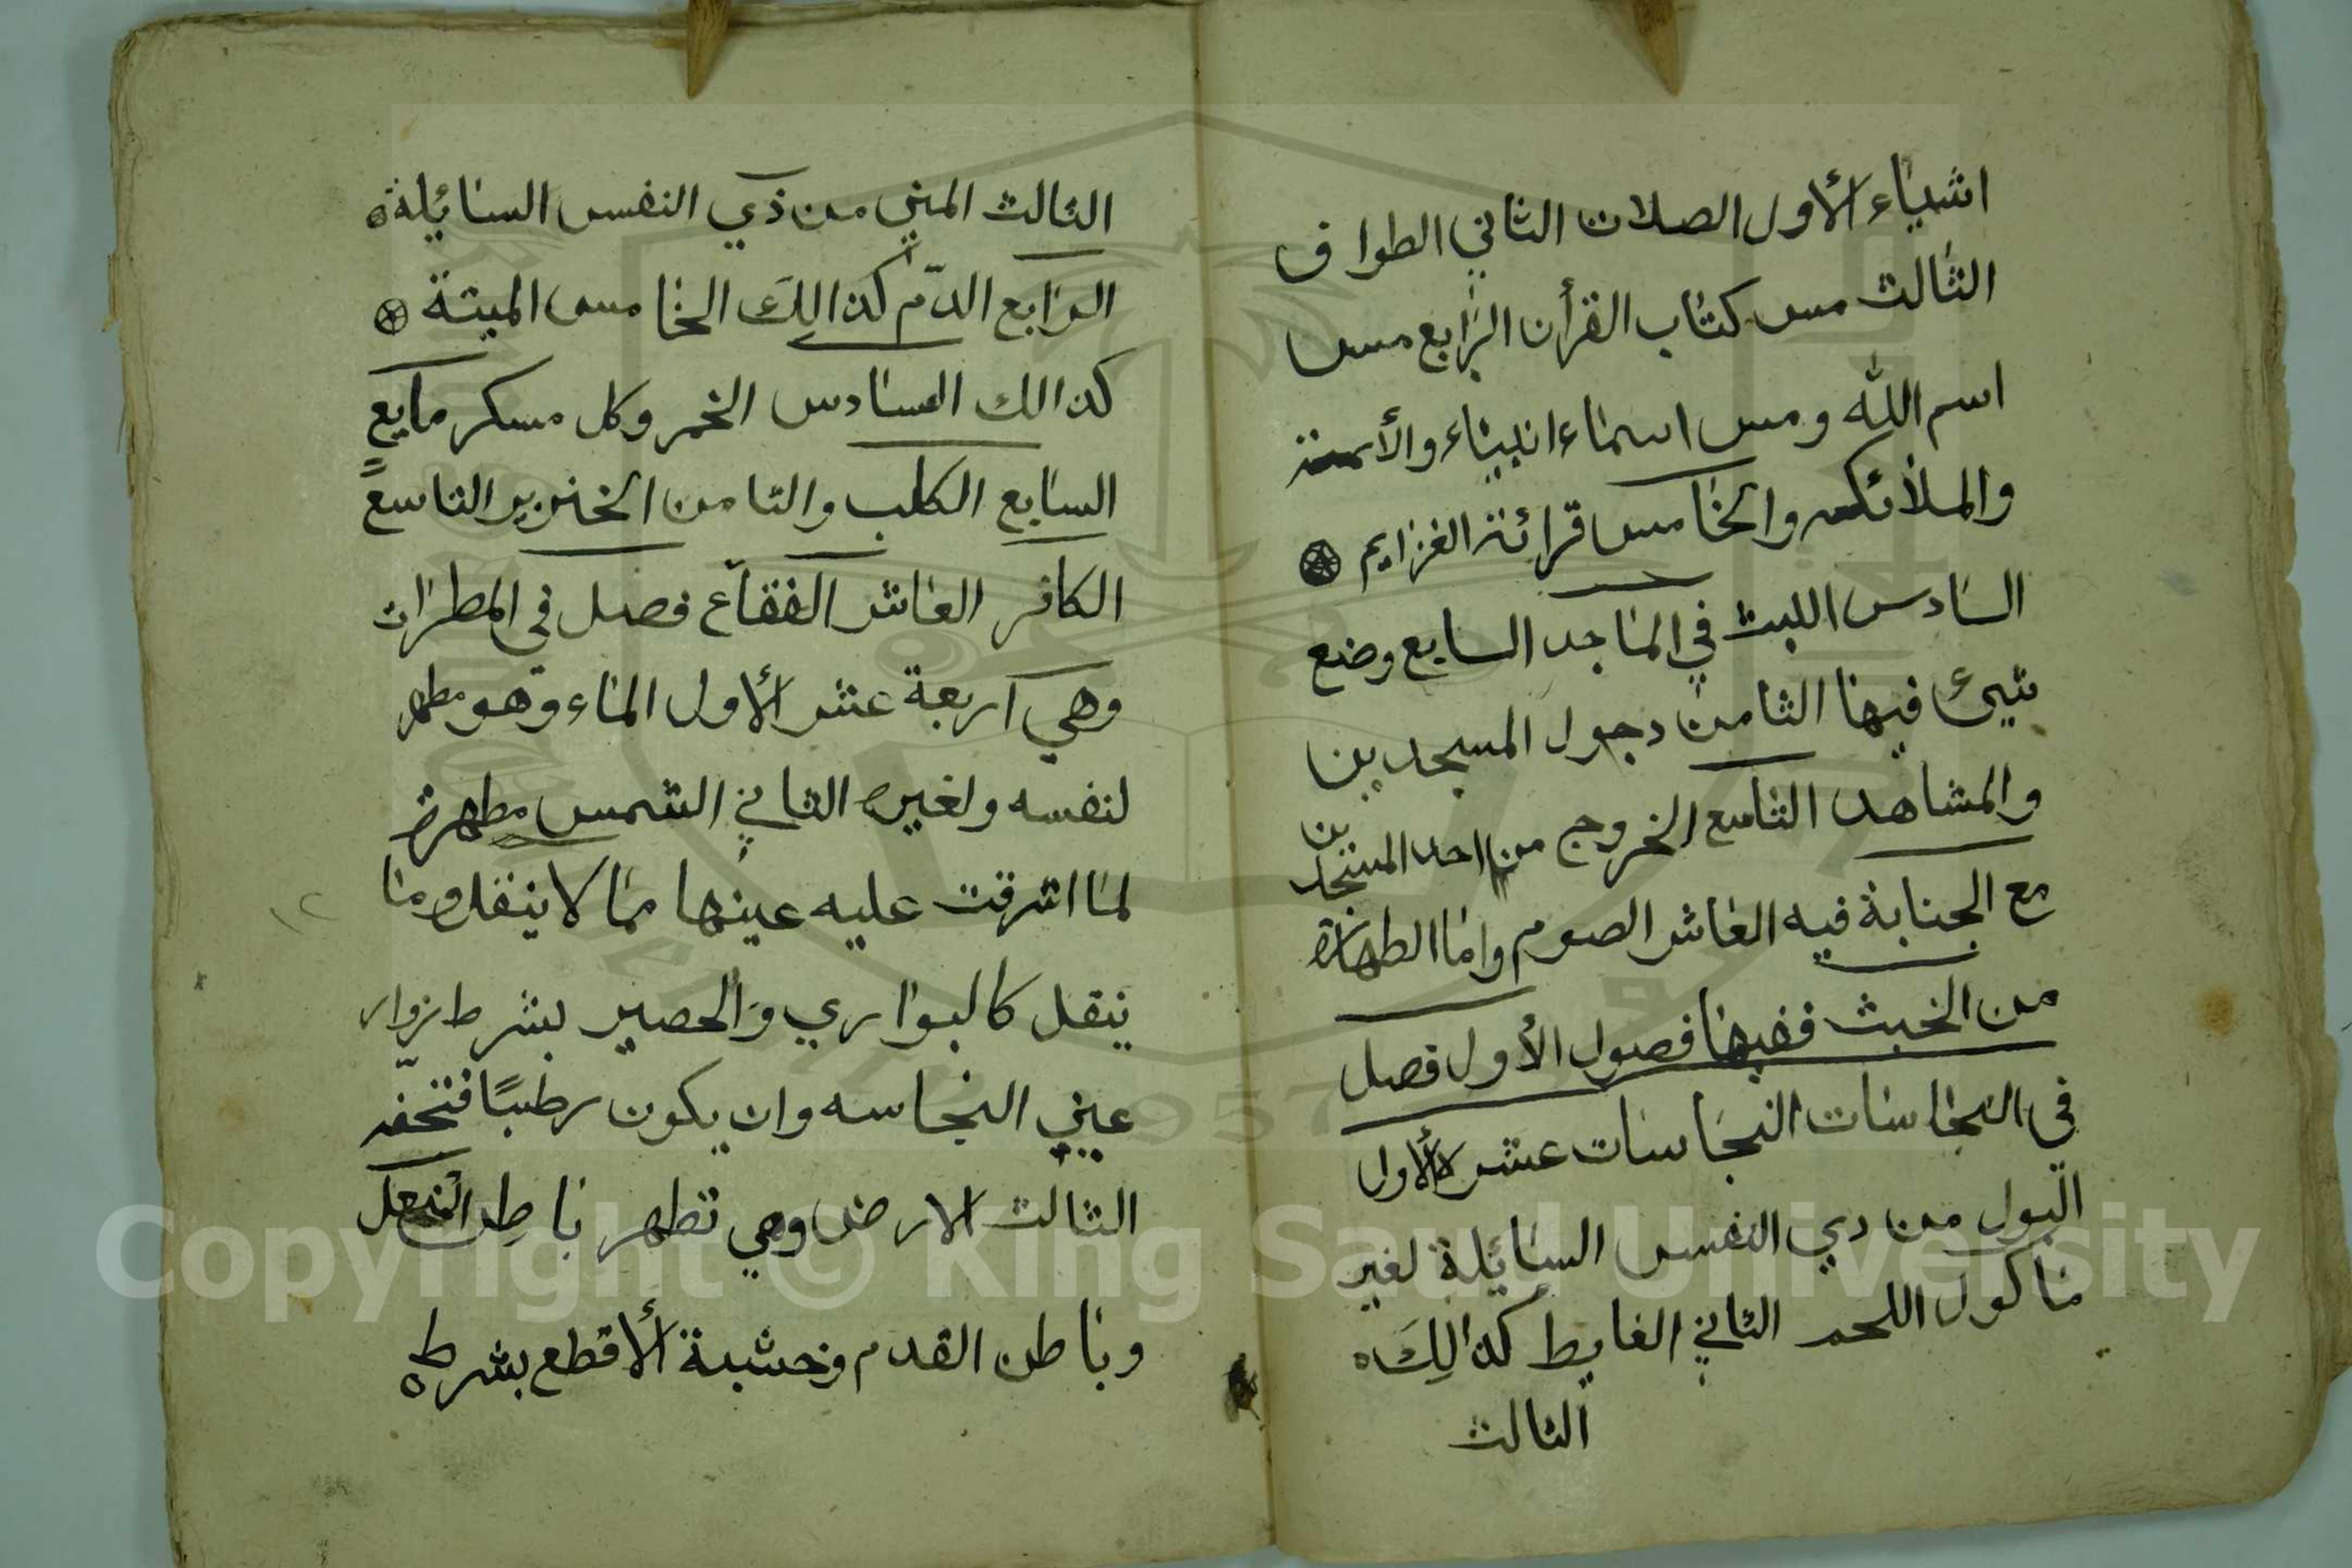 اشياء الأول الصلات الثاني الطواف
الثالث مس كتاب القرأن الرابع مس
اسم الله ومس اسماء انبياء والأمة
والملائكه والخامس قرائة العزايم
السادس اللبث في الماجد السابع وضع
شيئ فيها الثامن دجول المسجدين
والمشاهد التاسع الخروج من احد المسجدين
مع الجنابة فيه العاشر الصوم واما الطهارة
من الخبث ففيها فصول الأول فصل
في النجاسات النجاسات عشر الأول
البول من دي النفس السائلة لغير
ماكول اللحم الثاني الغايط كذالك
الثالث
الثالث المني من ذي النفس السائلة
الرابع الدّم كذالك الخامس الميتة
كذالك السادس الخمر وكل مسكر مايع
السابع الكلب والثامن الخنزير التاسع
الكافر العاشر الفقاع فصل في المطرات
وهي اربعة عشر الأول الماء وهو مطهر
لنفسه ولغيره الثاني الشمس مطهرة
لما اشرقت عليه عينها مما لا ينقل وما
ينقل كالبواري والحصير بشرط زوار
عيني النجاسه وان يكون رطبًا فتجفّه
الثالث الارض وهي تطهر باطن النعل
وباطن القدم وخشبة الأقطع بشرط
١٢
Copyright © King Saud University
1957